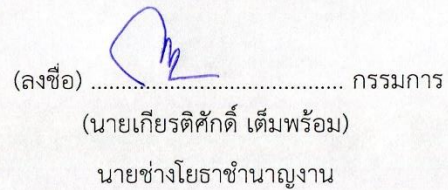 (ลงชื่อ) ............................................ กรรมการ
(นายเกียรติศักดิ์ เต็มพร้อม)
นายช่างโยธาชำนาญงาน